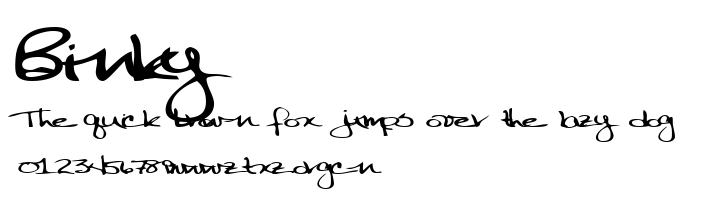 Binky
The quick brown fox jumps over the lazy dog
0123456789wwwztxzorgcn